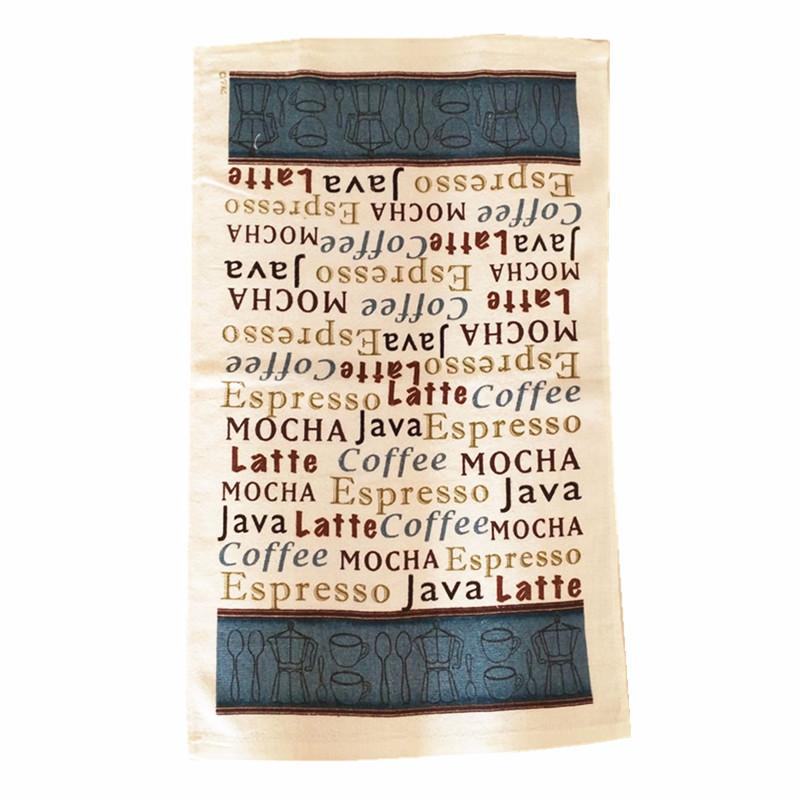 Latte Java Espresso
Espresso MOCHA Coffee
MOCHA Coffee Latte Java
Java Espresso MOCHA
MOCHA Coffee Latte
Espresso Java MOCHA
Coffee Latte Espresso
Espresso Latte Coffee
MOCHA Java Espresso
Latte Coffee MOCHA
MOCHA Espresso Java
Java Latte Coffee MOCHA
Coffee MOCHA Espresso
Espresso Java Latte